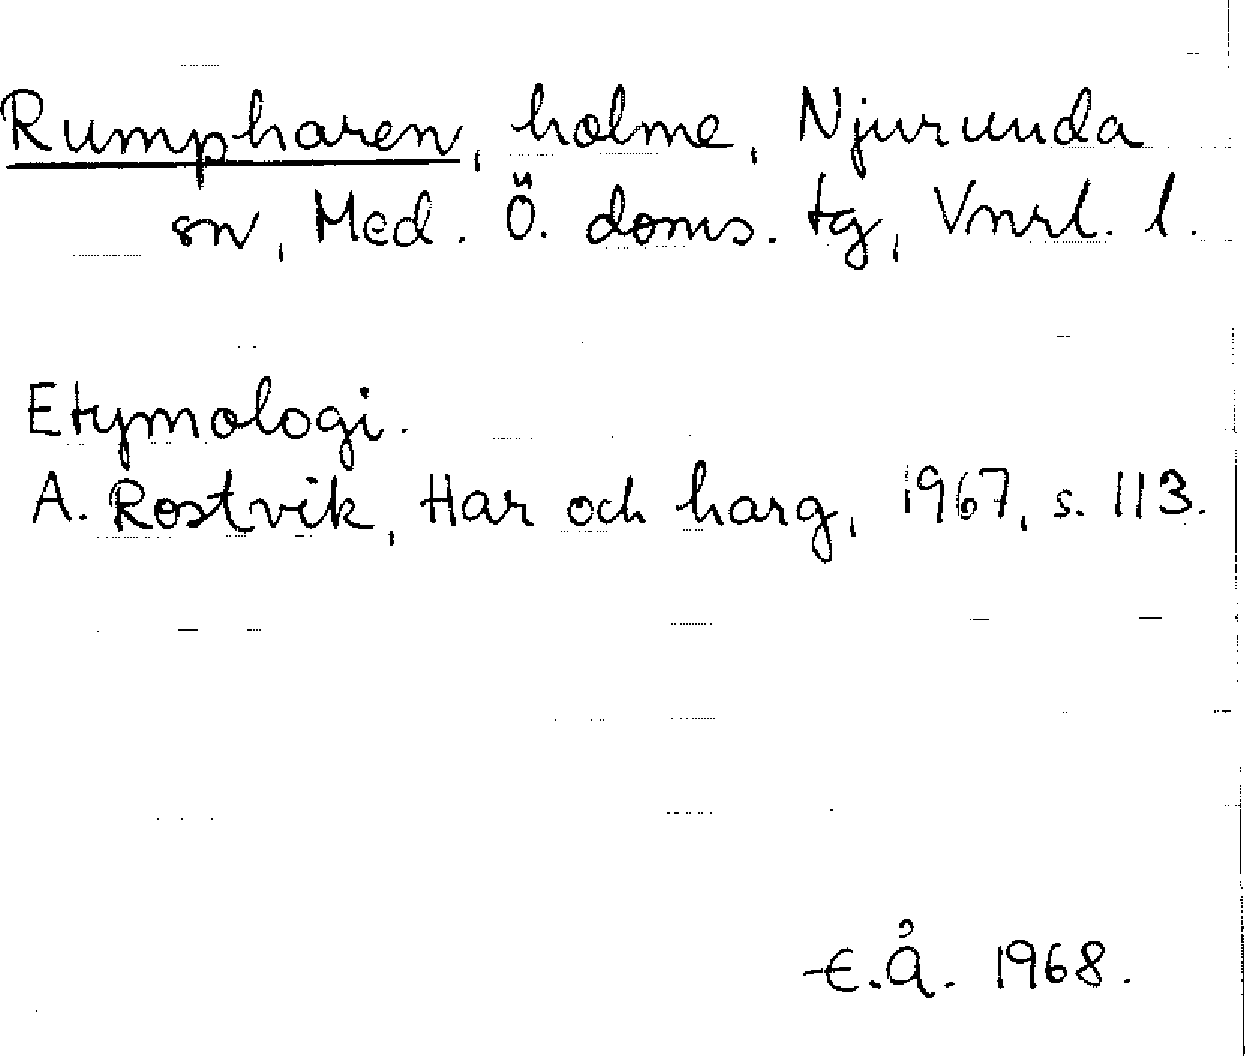 Rumpharen, holme, Njurunda
sn, Med. Ö. doms. tg, Vnrl. l.
Etymologi.
A. Rostvik, Har och harg, 1967, s. 113.
E.Å. 1968.